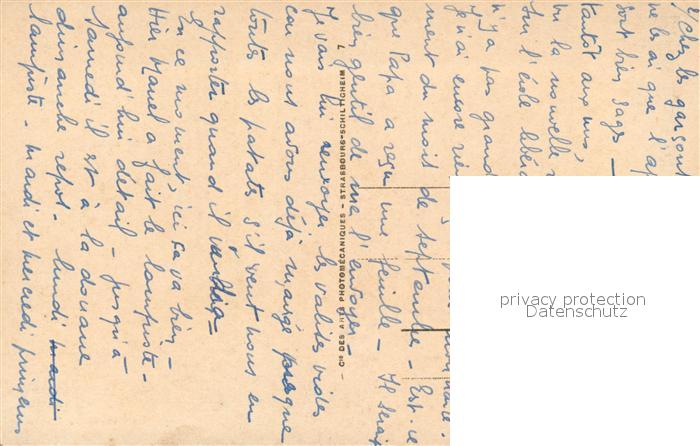 Chez les garçons
ne l'ai que l'ap
sont bien sages —
tantôt aux uns,
vu la nouvelle
sur l'école libé
n'y a pas grand
Je n'ai encore ré
ment du mois de septembre — Est-ce
que Papa a reçu une feuille — Il serait
bien gentil de me l'envoyer —
Je vais lui renvoyer les valises vides
car nous avons déjà mangé presque
toutes les patates s'il veut nous en
rapporter quand il viendra —
En ce moment, ici ça va bien —
Hier Marcel a fait le lampiste —
aujourd'hui détail — jusqu'à
Samedi il est à la douane
dimanche repos. lundi mardi
lampiste — mardi et mercredi primeurs
Cie DES ARTS PHOTOMÉCANIQUES - STRASBOURG-SCHILTIGHEIM
privacy protection
Datenschutz